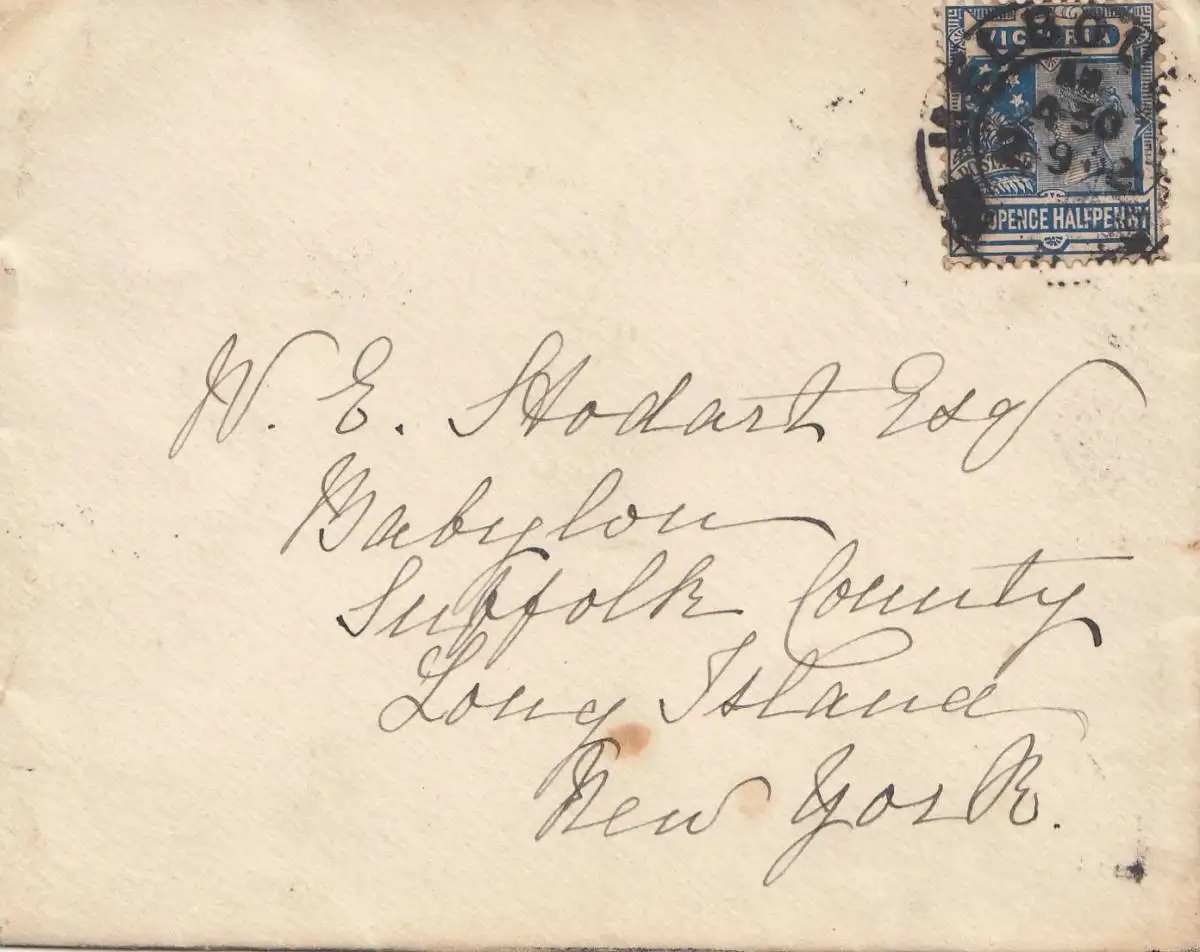 VICTORIA
MELBOU
AM
4 30
POSTAGE
OPENCE HALFPENNY
W. E. Stodart Esq
Babylon
Suffolk County
Long Island
New York.